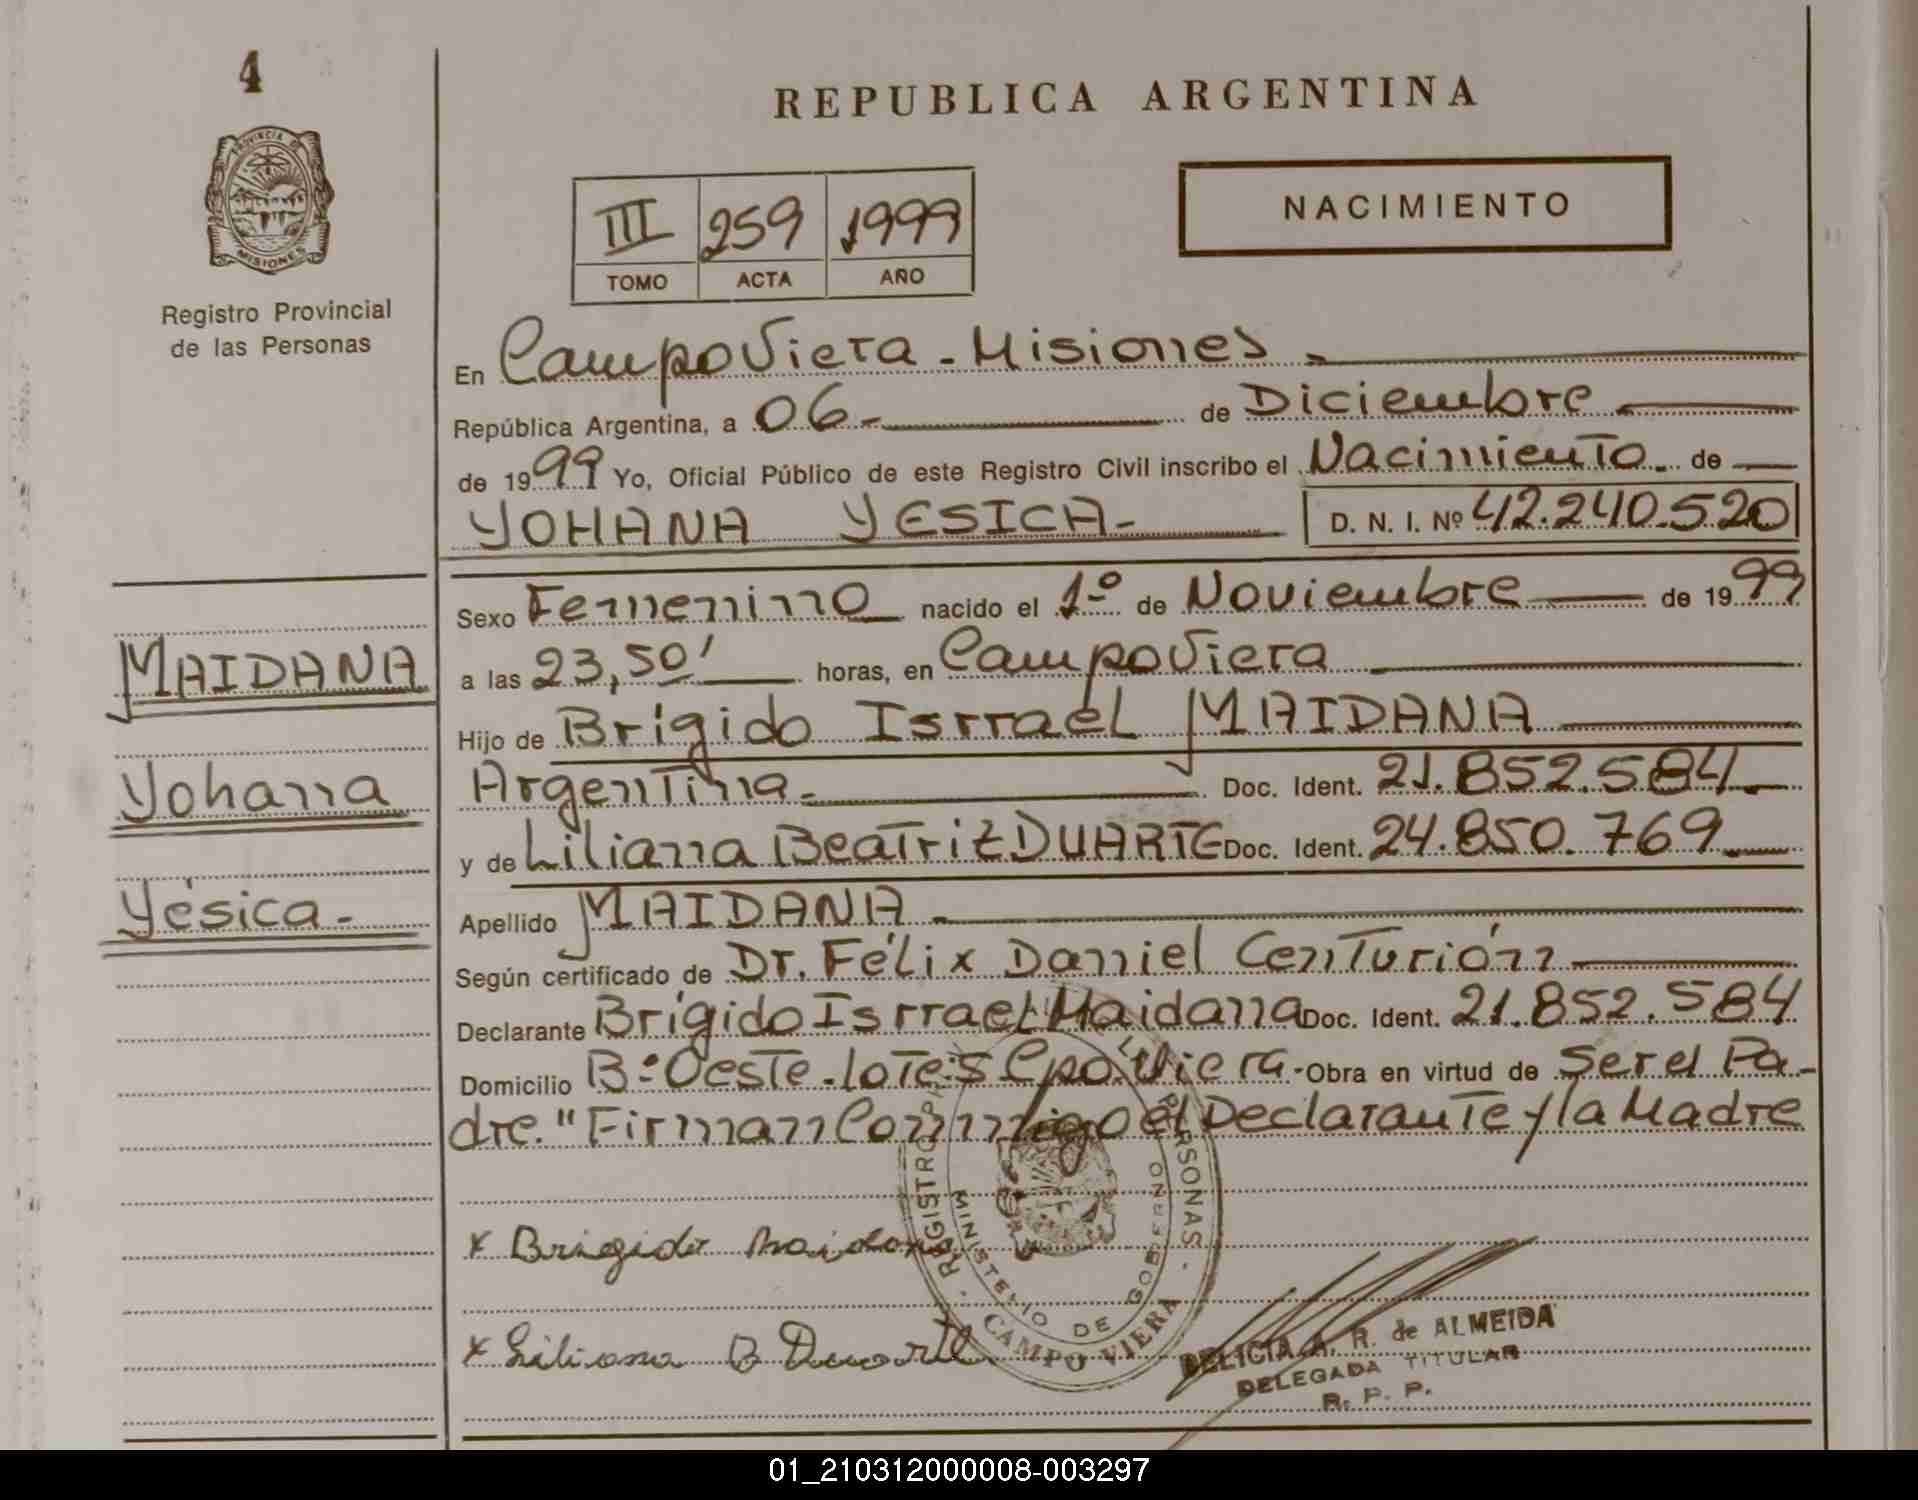 4
REPUBLICA ARGENTINA
PROVINCIA DE
MISIONES
Registro Provincial
de las Personas
III 259 1999
TOMO ACTA AÑO
NACIMIENTO
En Campo Viera - Misiones -
República Argentina, a 06 - de Diciembre
de 1999 Yo, Oficial Público de este Registro Civil inscribo el Nacimiento. de
YOHANA YESICA - D. N. I. Nº 42.240.520
Sexo Femenino nacido el 1º de Noviembre de 1999
a las 23,50' horas, en Campo Viera
Hijo de Brígido Isrrael MAIDANA
Argentina - Doc. Ident. 21.852.584 -
y de Liliana Beatriz DUARTE Doc. Ident. 24.850.769
Apellido MAIDANA -
Según certificado de Dr. Félix Daniel Centurión
Declarante Brígido Isrrael Maidana Doc. Ident. 21.852.584
Domicilio Bº Oeste - lote 5 Cpo. Viera - Obra en virtud de Ser el Pa-
dre. "Firman Conmigo el Declarante y la Madre
MAIDANA
Yohana
Yésica -
x Brigido Maidana
x Liliana B Duarte
REGISTRO PERSONAS
MINISTERIO DE GOBIERNO
CAMPO VIERA
DELICIA A. R. de ALMEIDA
DELEGADA TITULAR
R. P. P.
01_210312000008-003297